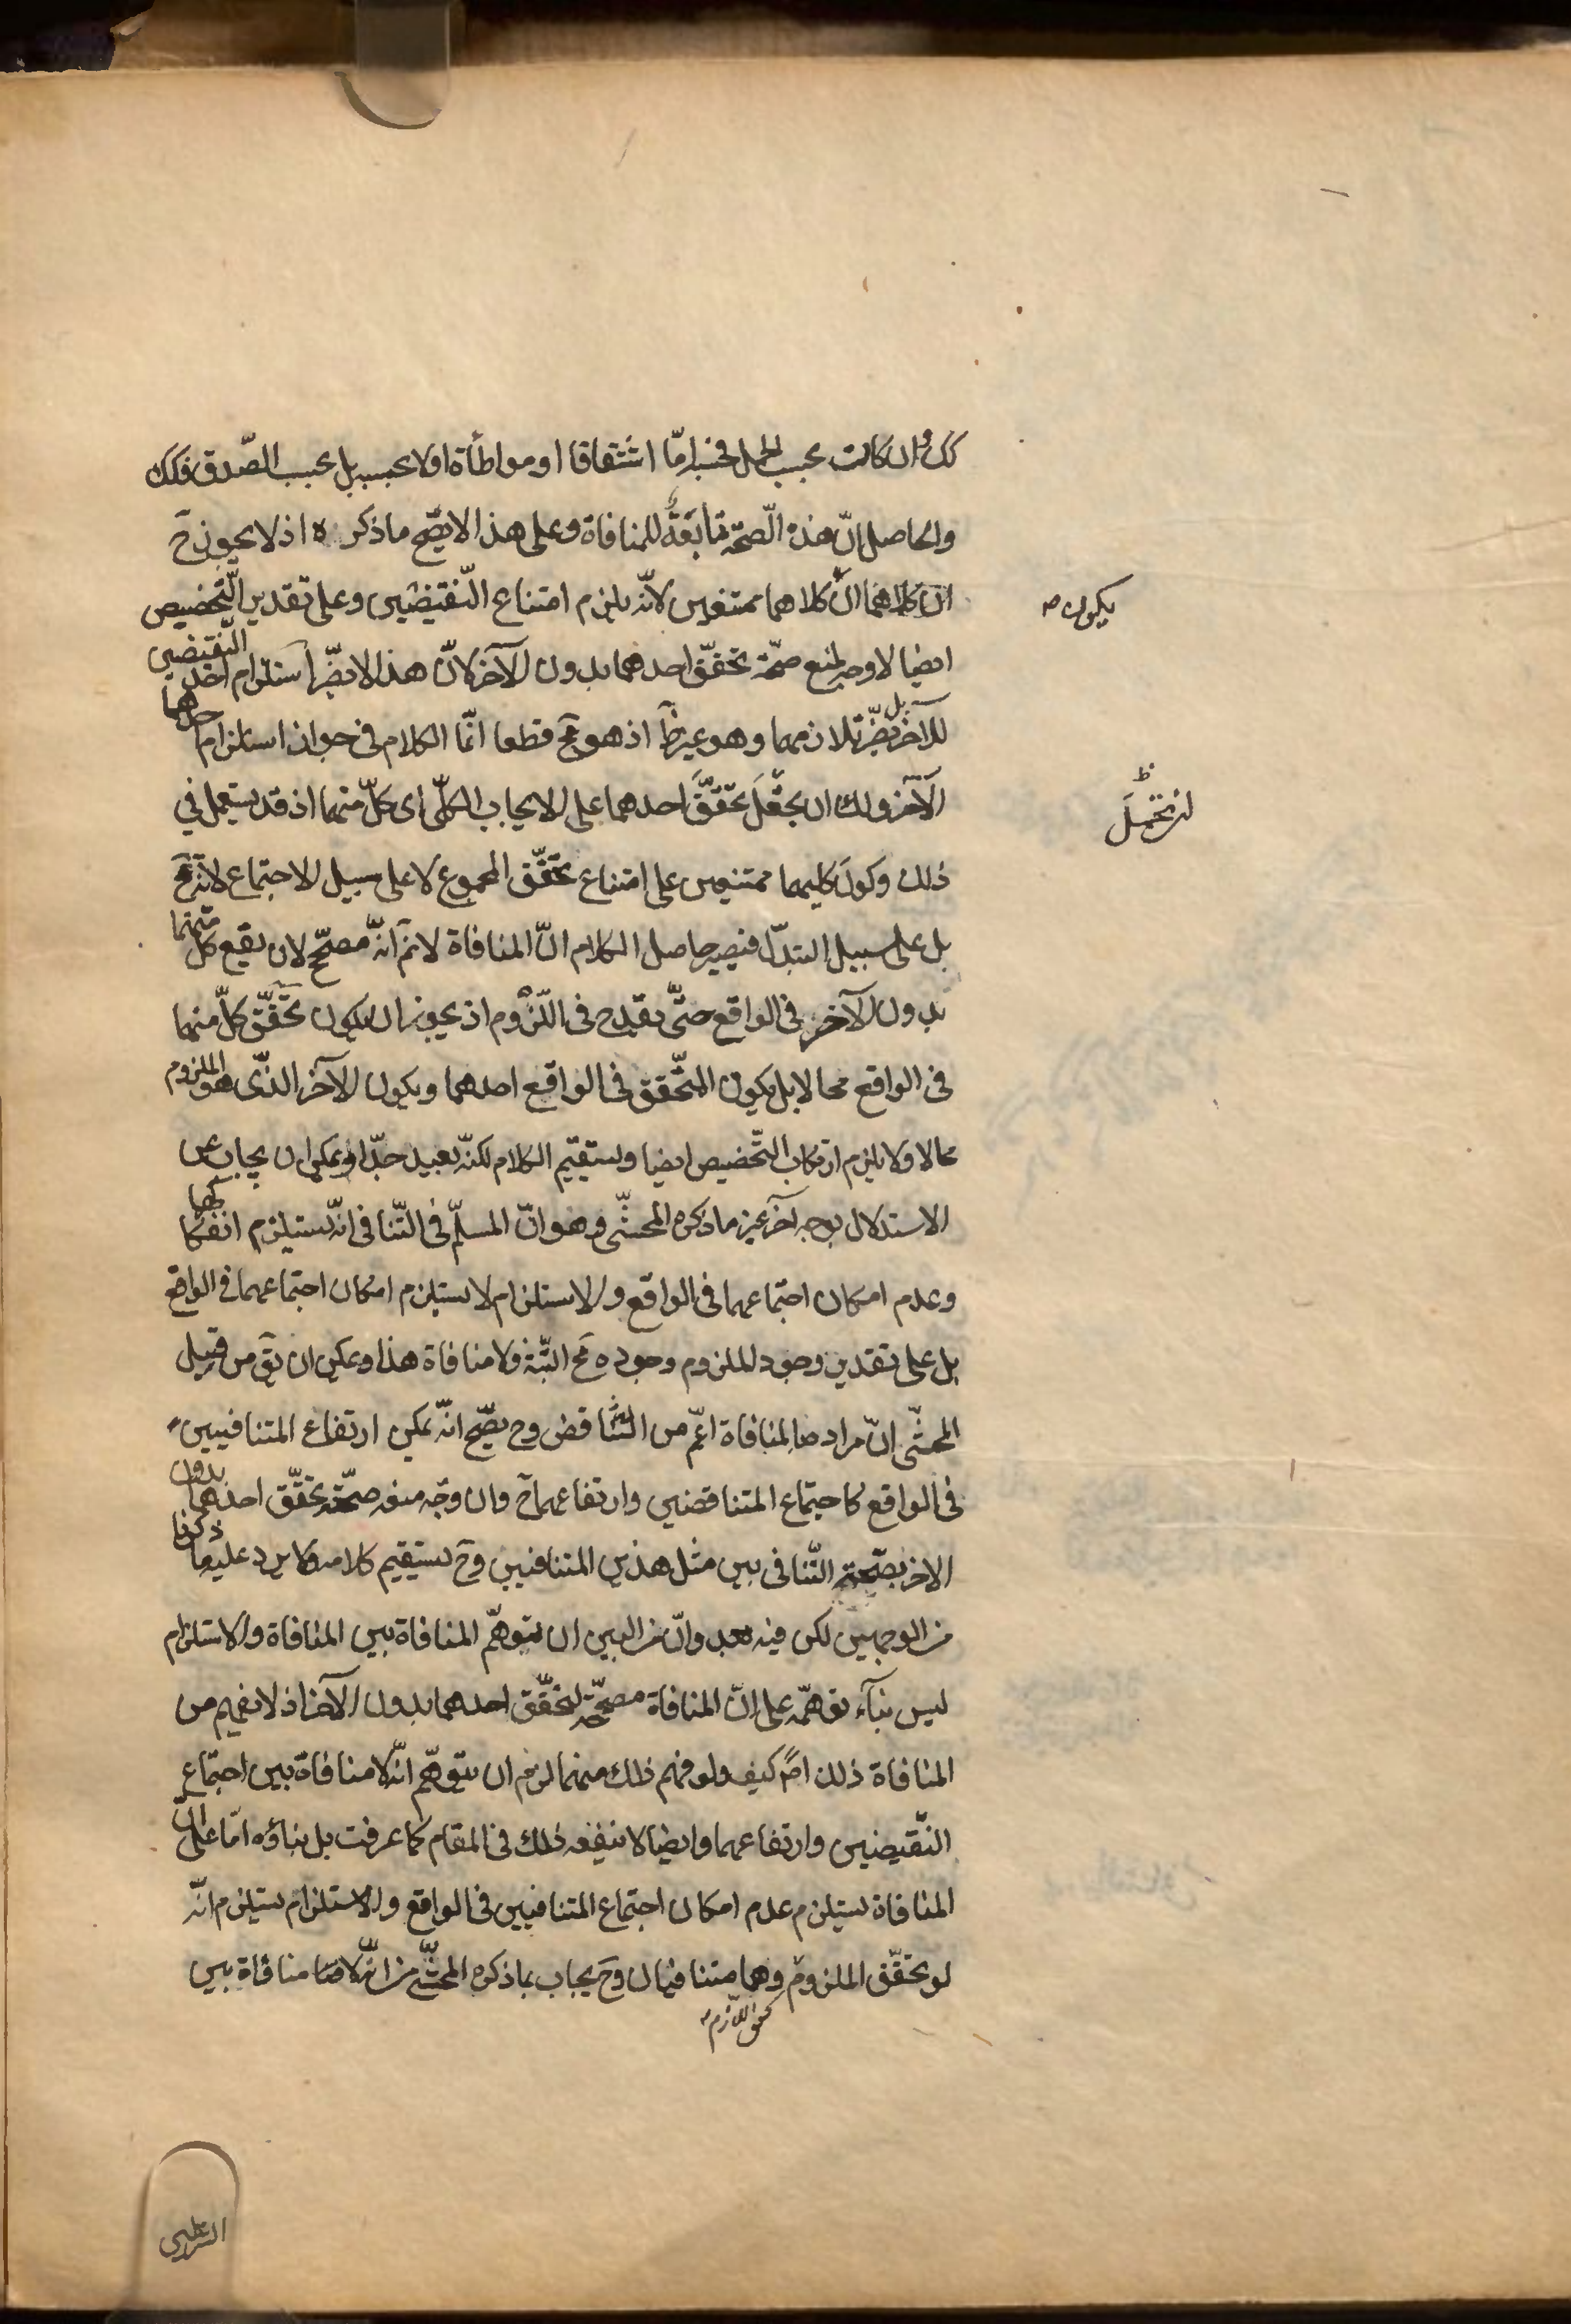 كك وان كانت بحسب الحمل فحسب امّا اشتقاقا او مواطأة اولا بحسبه بل بحسب الصّدق فكك
والحاصل انّ هذه الصّحّة تابعة للمنافاة وعلى هذا لا يصّح ما ذكره اذ لا يجوز ح
انّ كلاهما ممتنعين لانّه يلزم امتناع النّقيضين وعلى تقدير التّخصيص
يكون
ايضا لا وجه لمنع صحّة تحقّق احدهما بدون الآخر لانّ هذا لا يضّر استلزام احد النّقيضين
للآخر بل يضّر تلازمهما وهو غير ظ اذ هو مح قطعا انّما الكلام فى جواز استلزام احدهما
الآخر ولك ان تحمل تحقّق احدهما على الايجاب الكلّى اى كلّ منهما اذ قد يستعمل فى
ان تحمل ظ
ذلك وكون كليهما ممتنعين على امتناع تحقّق المجموع لا على سبيل الاجتماع لانّه مح
بل على سبيل التبدّل فيصير حاصل الكلام انّ المنافاة لا نم انّه مصحّح لان يقع كلّ منهما
بدون الآخر فى الواقع حتّى يقدح فى اللّزوم اذ يجوز ان يكون تحقّق كلّ منهما
فى الواقع محالا بل يكون المتّحقق فى الواقع احدهما ويكون الآخر الذّى هو الملزوم
محالا ولا يلزم ارتكاب التّخصيص ايضا ويستقيم الكلام لكنّه بعيد جدّا ويمكن ان يجاب عن
الاستدلال بوجه آخر غير ما ذكره المحشّى وهو انّ المسلّم فى التّنافى انّه يستلزم انفكاكهما
وعدم امكان اجتماعهما فى الواقع والاستلزام لا يستلزم امكان اجتماعهما فى الواقع
بل على تقدير وجود الملزوم وجوده مح البتّة ولا منافاة هذا ويمكن ان يق من قبيل
المحشّى انّ مراده بالمنافاة اعّم من التّناقض وح يصّح انّه يمكن ارتفاع المتنافيين
فى الواقع كاجتماع المتناقضين وارتفاعهما ح وان وجّه منعه صحّة تحقّق احدهما بدون
الاخر بصّحة التّنافى بين مثل هذين المتنافيين وح يستقيم كلامه ولا يرد عليه ما ذكرنا
من الوجهين لكن فيه بعد وانّ من البين ان توهّم المنافاة بين المنافاة والاستلزام
ليس بناء توهمّه على انّ المنافاة مصحّحة لتحقّق احدهما بدون الآخر اذ لا يفهم من
المنافاة ذلك اصلا كيف ولو فهم ذلك منهما لزم ان يتوهّم انّه لا منافاة بين اجتماع
النّقيضين وارتفاعهما وايضا لا ينفعه ذلك فى المقام كما عرفت بل بناؤه امّا على انّ
المنافاة يستلزم عدم امكان اجتماع المتنافيين فى الواقع والاستلزام يستلزم انّه
لو تحقّق الملزوم وهما متنافيان وح يجاب بما ذكره المحشّى من انّه لا منافاة بين
تحقق اللازم